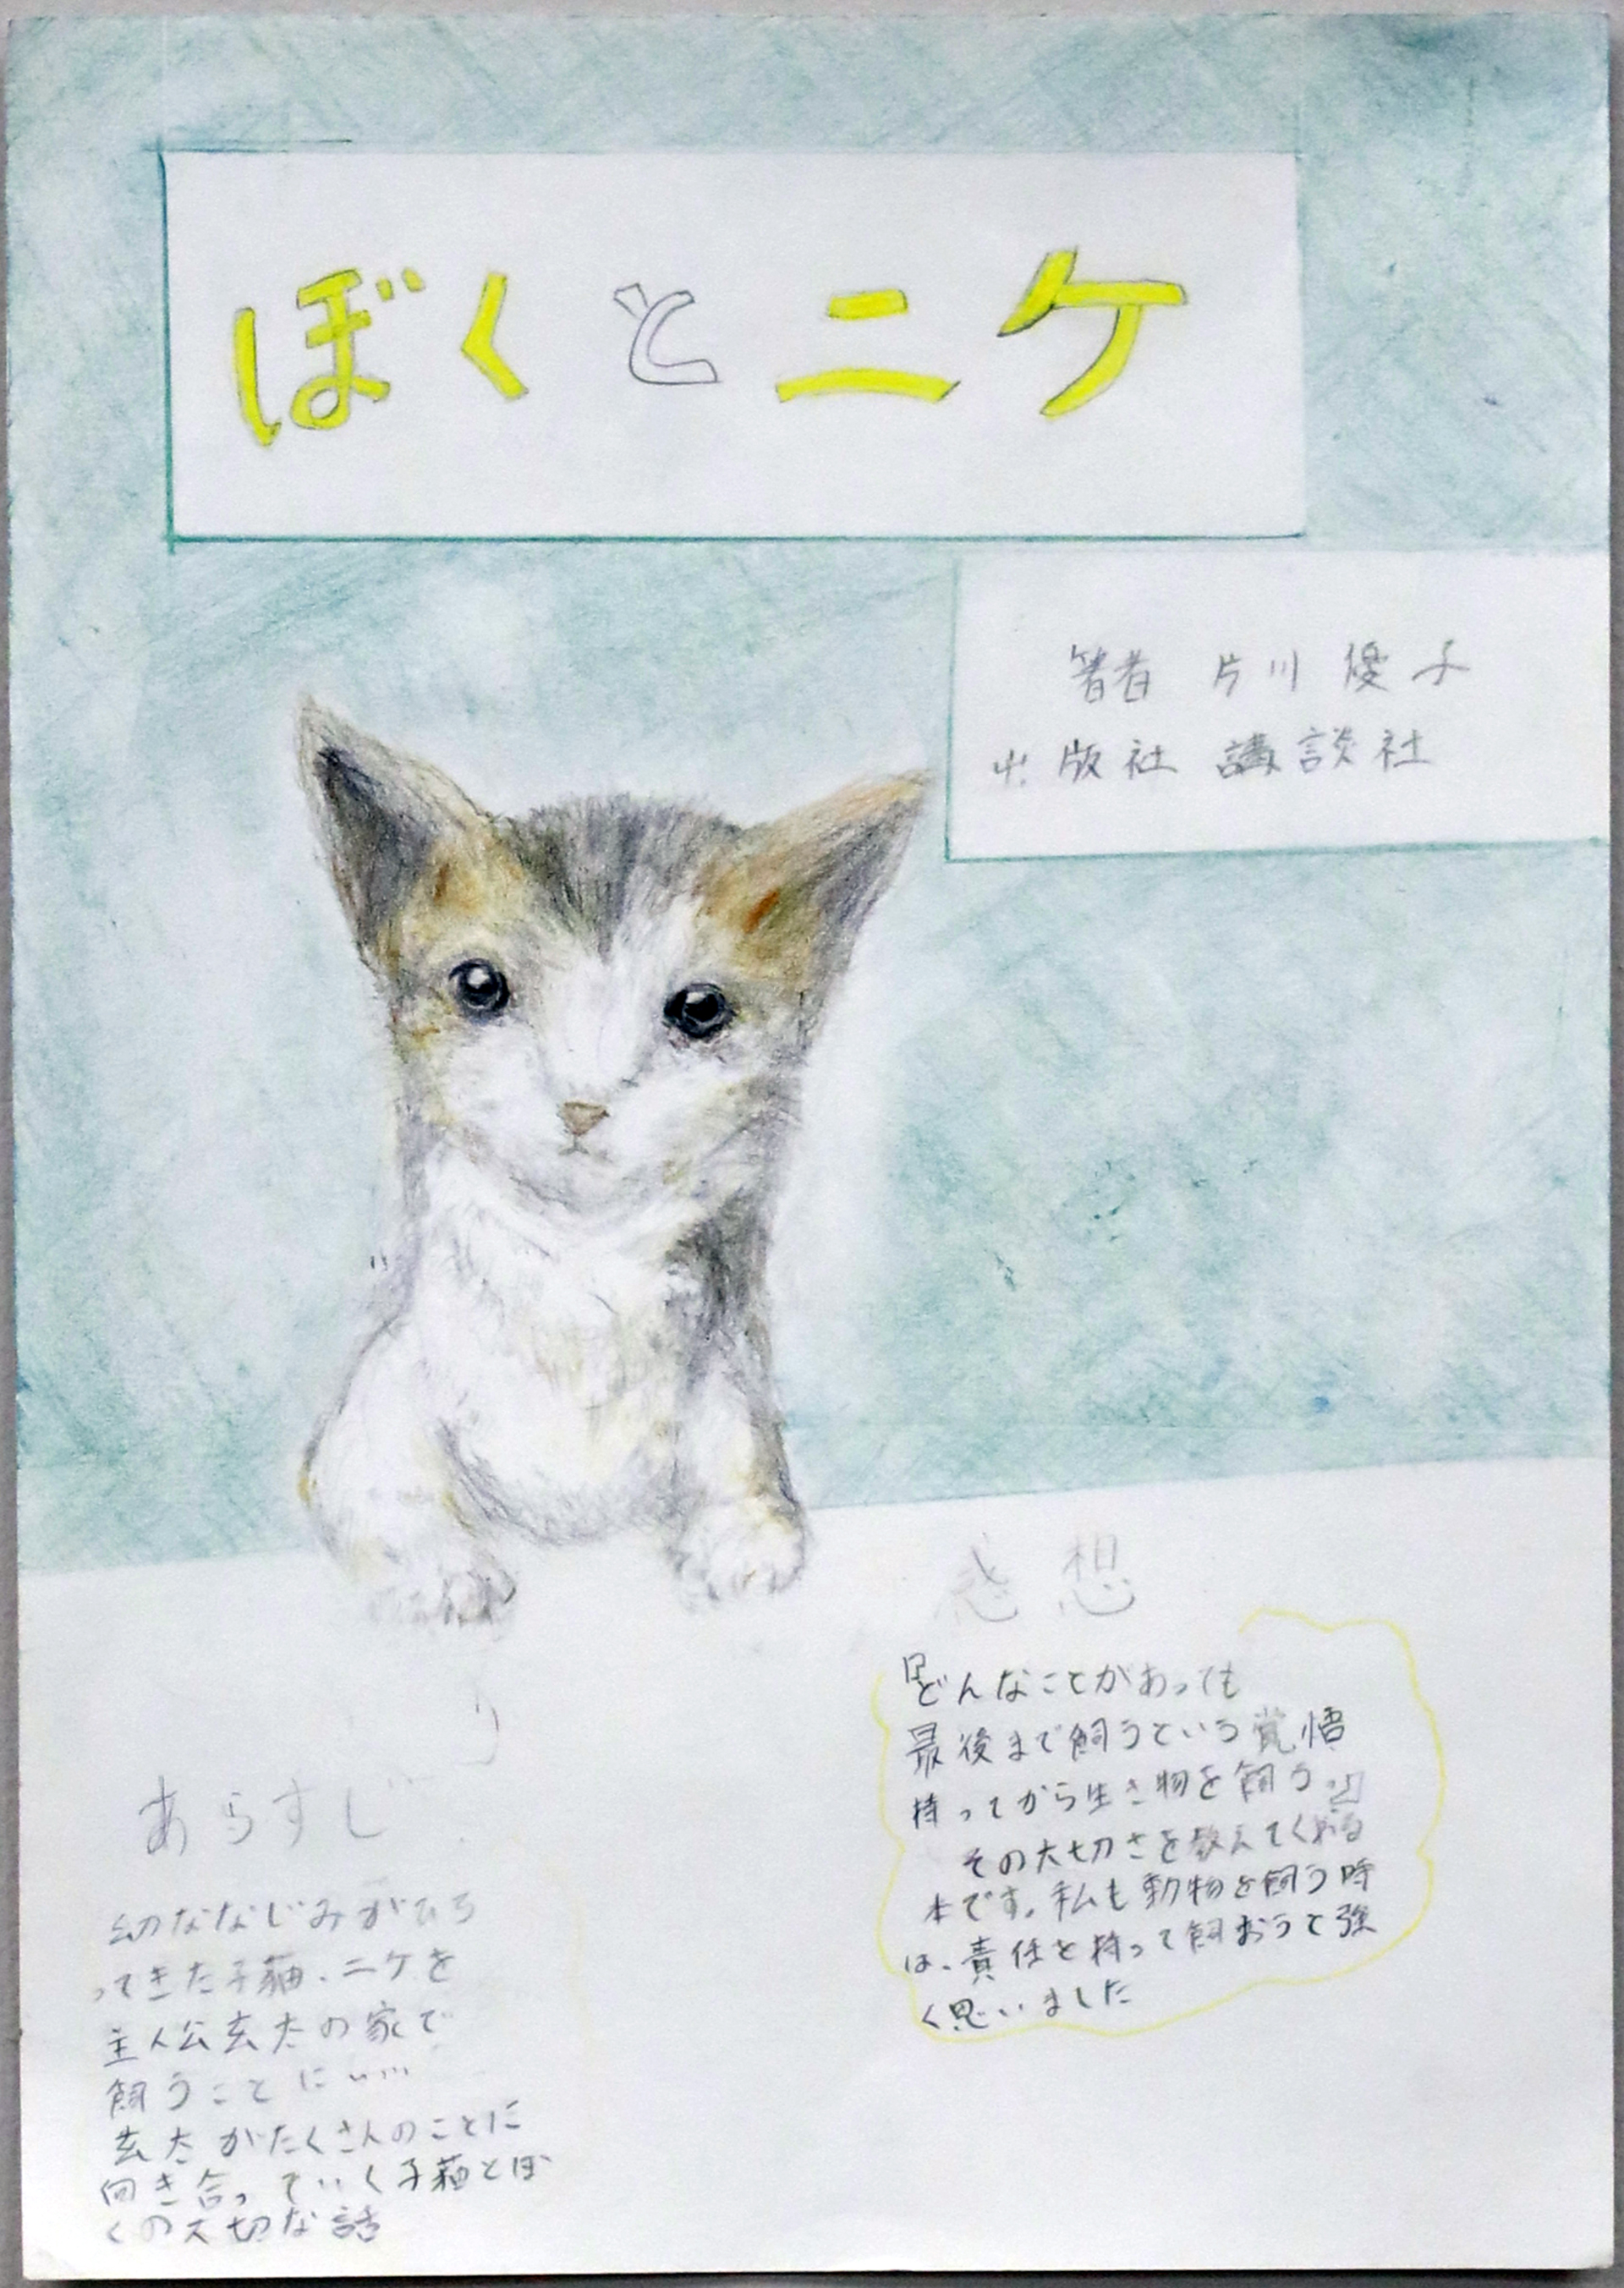 ぼくとニケ
著者 片川優子
出版社 講談社
感想
『どんなことがあっても
最後まで飼うという覚悟
持ってから生き物を飼う。』
その大切さを教えてくれる
本です。私も動物を飼う時
は、責任を持って飼おうと強
く思いました
あらすじ
幼ななじみがひろ
ってきた子猫、ニケを
主人公玄太の家で
飼うことに……
玄太がたくさんのことに
向き合っていく子猫とぼ
くの大切な話